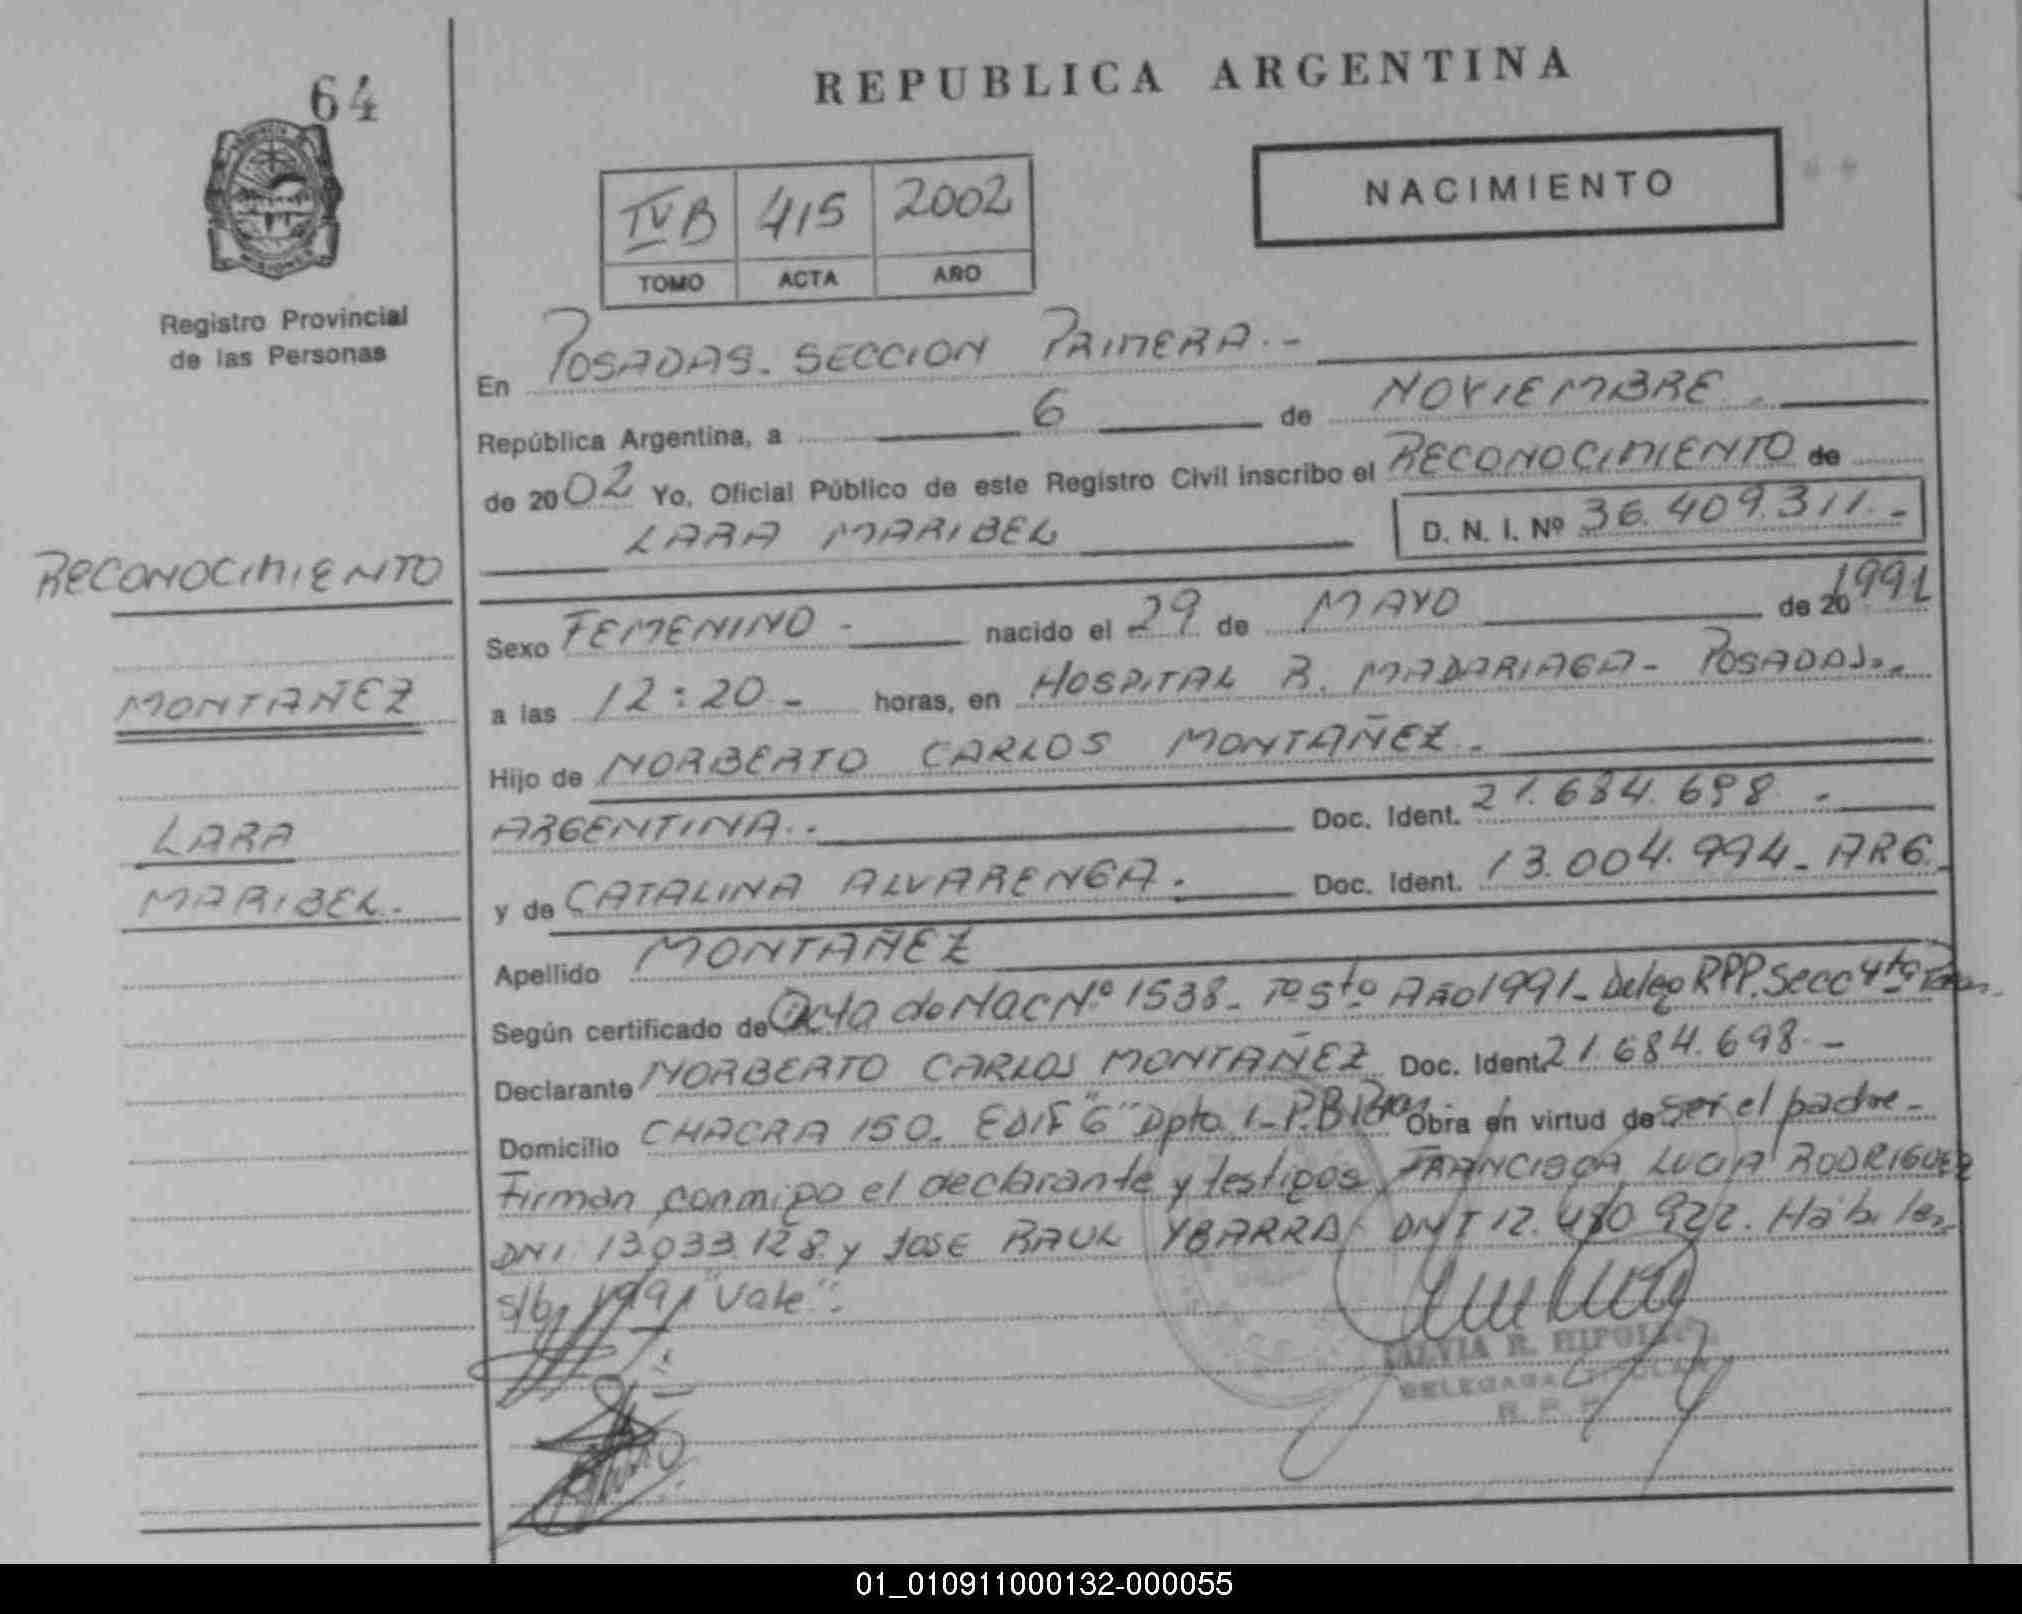 64
REPUBLICA ARGENTINA
NACIMIENTO
IV B 415 2002
TOMO ACTA AÑO
Registro Provincial
de las Personas
En POSADAS. SECCION PRIMERA.-
República Argentina, a 6 de NOVIEMBRE
de 2002 Yo, Oficial Público de este Registro Civil inscribo el RECONOCIMIENTO de
LARA MARIBEL D. N. I. Nº 36.409.311.-
RECONOCIMIENTO
Sexo FEMENINO - nacido el 29 de MAYO de 20 1991
MONTAÑEZ
a las 12:20 - horas, en HOSPITAL R. MADARIAGA - POSADAS.-
Hijo de NORBERTO CARLOS MONTAÑEZ.
LARA
ARGENTINA.- Doc. Ident. 21.684.698 -
MARIBEL.
y de CATALINA ALVARENGA. Doc. Ident. 13.004.994 - ARG.
Apellido MONTAÑEZ
Según certificado de Acta de Nac Nº 1538 - Tº 5to Año 1991 - Deleg RPP. Secc 4ta
Declarante NORBERTO CARLOS MONTAÑEZ Doc. Ident. 21.684.698.-
Domicilio CHACRA 150. EDIF "G" Dpto 1 - P.B Obra en virtud de ser el padre -
Firman conmigo el declarante y testigos FRANCISCA LUCIA RODRIGUEZ
DNI. 13.033.128 y JOSE RAUL YBARRA DNI 12.480.922. Hábiles
s/b 1991 "Vale".
R. HIPOLI
DELEGADA TITULAR
R. P. P.
01_010911000132-000055